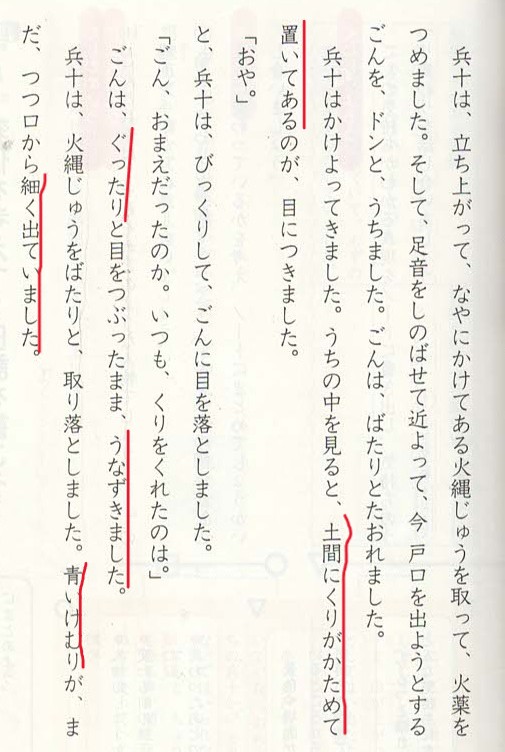 兵十は、立ち上がって、なやにかけてある火縄じゅうを取って、火薬を
つめました。そして、足音をしのばせて近よって、今 戸口を出ようとする
ごんを、ドンと、うちました。ごんは、ばたりとたおれました。
兵十はかけよってきました。うちの中を見ると、土間にくりがかためて
置いてあるのが、目につきました。
「おや。」
と、兵十は、びっくりして、ごんに目を落としました。
「ごん、おまえだったのか。いつも、くりをくれたのは。」
ごんは、ぐったりと目をつぶったまま、うなずきました。
兵十は、火縄じゅうをばたりと、取り落としました。青いけむりが、ま
だ、つつ口から細く出ていました。